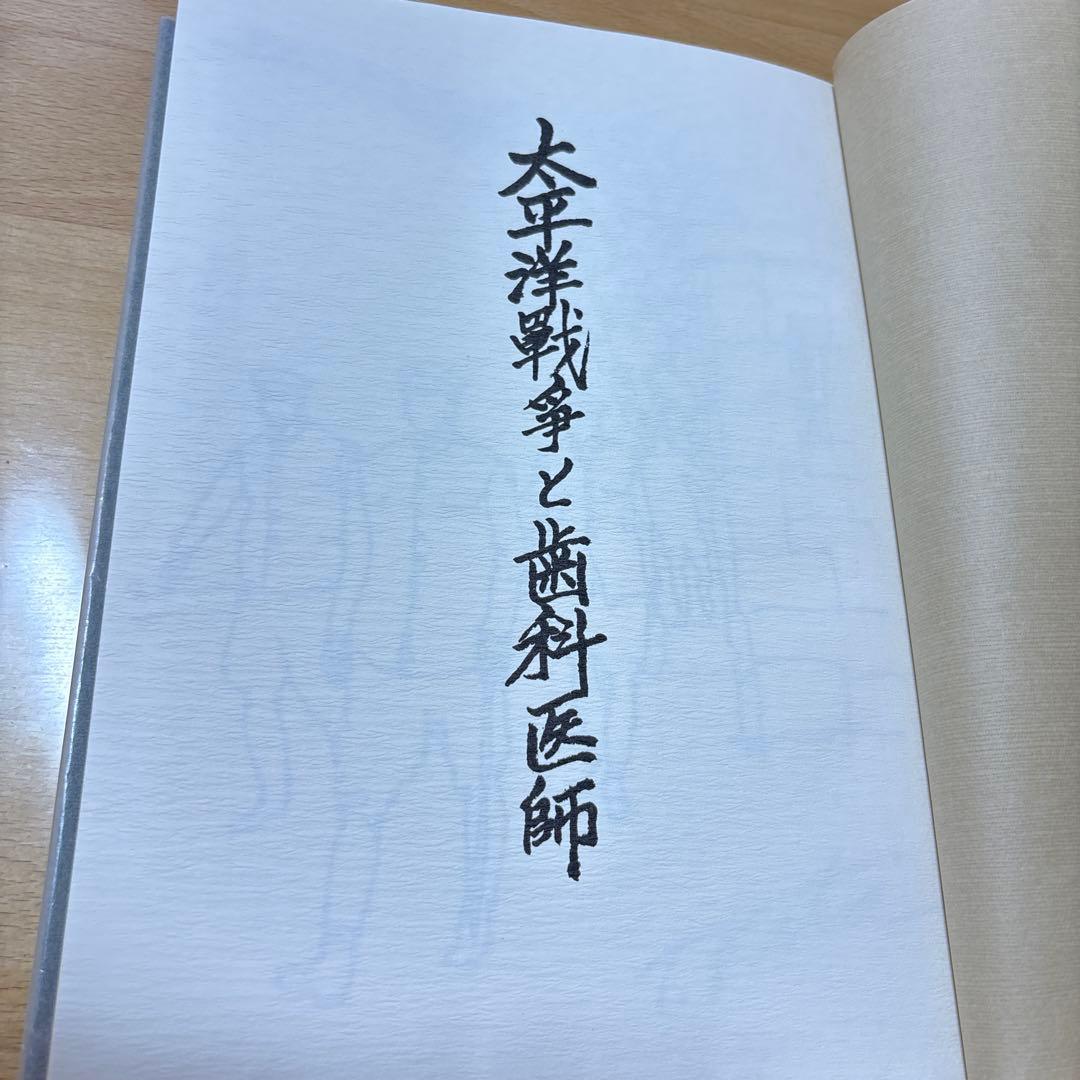 太平洋戰爭と歯科医師